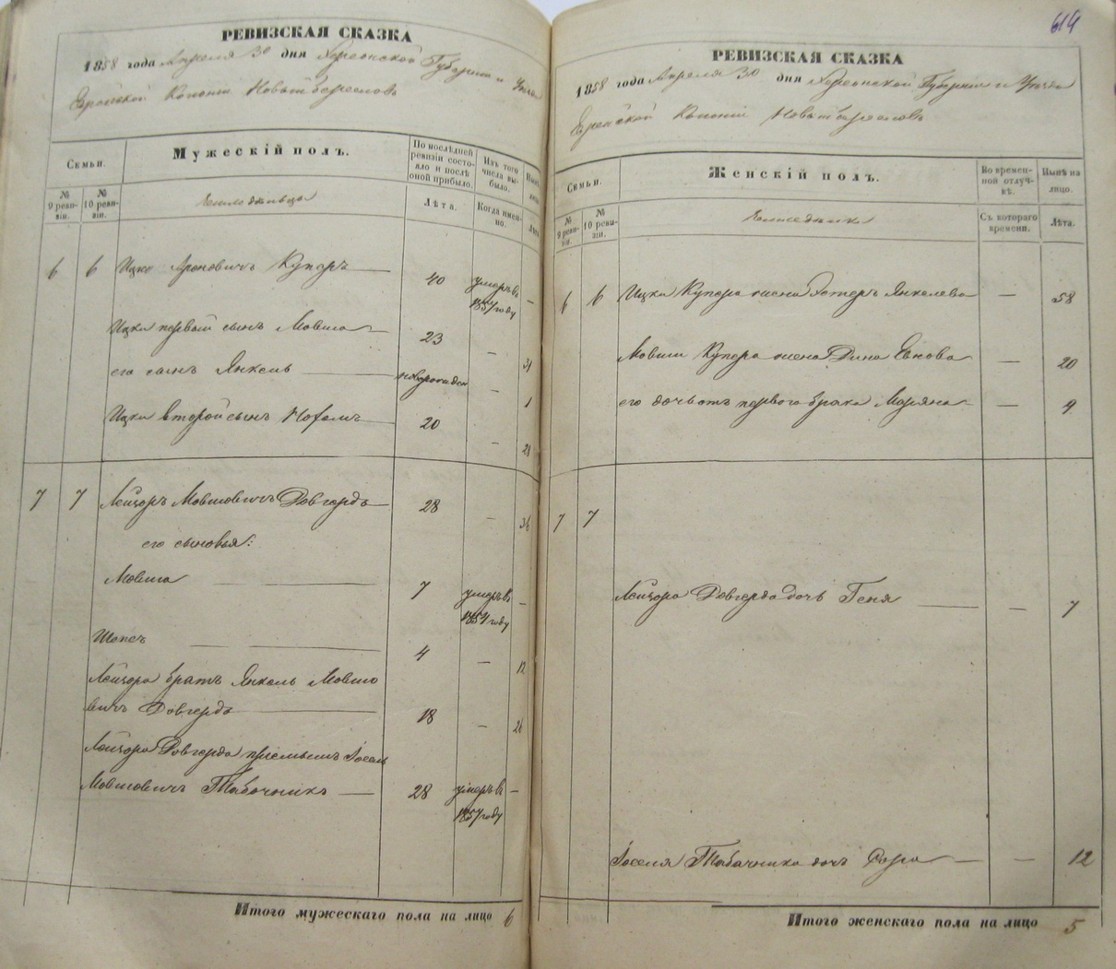 РЕВИЗСКАЯ СКАЗКА
1858 года Апреля 30 дня Херсонской Губернии и Уезда
Еврейской Колоніи Новый бериславъ
Семьи.
Мужескій полъ.
По послѣдней ревизіи состояло и послѣ оной прибыло.
Изъ того числа выбыло.
№ 9 ревизіи.
№ 10 ревизіи.
Лѣта.
Когда именно.
6 6 Ицко Ароновичъ Куперъ 40 умеръ въ 1857 году —
Ицки первый сынъ Мовша 23 — 31
его сынъ Янкель — 1
Ицки второй сынъ Нохемъ 20 — 28
7 7 Лейзоръ Мовшовичъ Довгердъ 28 — 36
его сыновья:
Мовша 7 умеръ въ 1854 году —
Шопсъ 4 — 12
Лейзора братъ Янкель Мовшо
вичъ Довгердъ 18 — 26
Лейзора Довгерда пріемышъ Іосель
Мовшовичъ Табачникъ 28 умеръ въ 1857 году —
Итого мужескаго пола на лицо 6
614
РЕВИЗСКАЯ СКАЗКА
1858 года Апреля 30 дня Херсонской Губерніи и Уезда
Еврейской Колоніи Новый бериславъ
Семьи.
Женскій полъ.
Во временной отлучкѣ.
Нынѣ на лицо.
№ 9 ревизіи.
№ 10 ревизіи.
Съ котораго времени.
Лѣта.
6 6 Ицки Купера жена Эстеръ Янкелева — 58
Мовши Купера жена Дина — 20
его дочь отъ перваго брака Марьяна — 9
7 7
Лейзора Довгерда дочь Геня — 7
Іоселя Табачника дочь Сура — 12
Итого женскаго пола на лицо 5